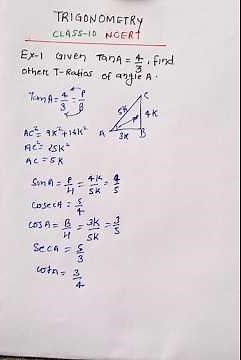 TRIGONOMETRY
CLASS-10 NCERT
Ex-1 Given TanA = 4/3, find
other T-Ratios of angle A.
TanA = 4/3 = P/B
C
5K
4K
A
3K
B
AC² = 9K² + 16K²
AC² = 25K²
AC = 5K
SinA = P/H = 4K/5K = 4/5
CosecA = 5/4
CosA = B/H = 3K/5K = 3/5
SecA = 5/3
CotA = 3/4